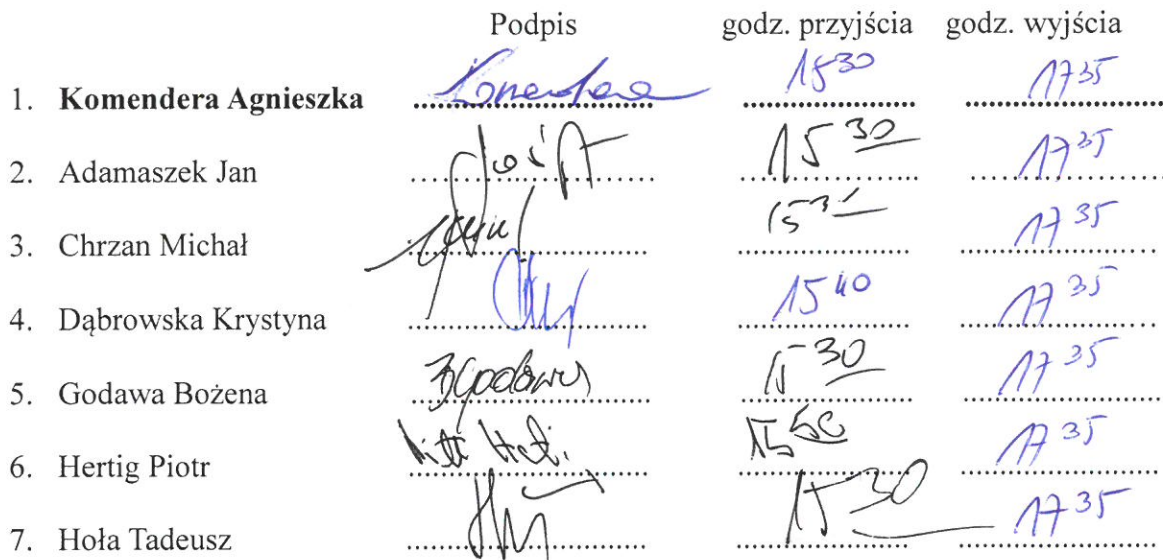 Podpis godz. przyjścia godz. wyjścia
1. Komendera Agnieszka Komendera 15 30 17 35
2. Adamaszek Jan 15 30 17 35
3. Chrzan Michał 15 31 17 35
4. Dąbrowska Krystyna 15 40 17 35
5. Godawa Bożena BGodawa 15 30 17 35
6. Hertig Piotr 15 50 17 35
7. Hoła Tadeusz 15 30 17 35